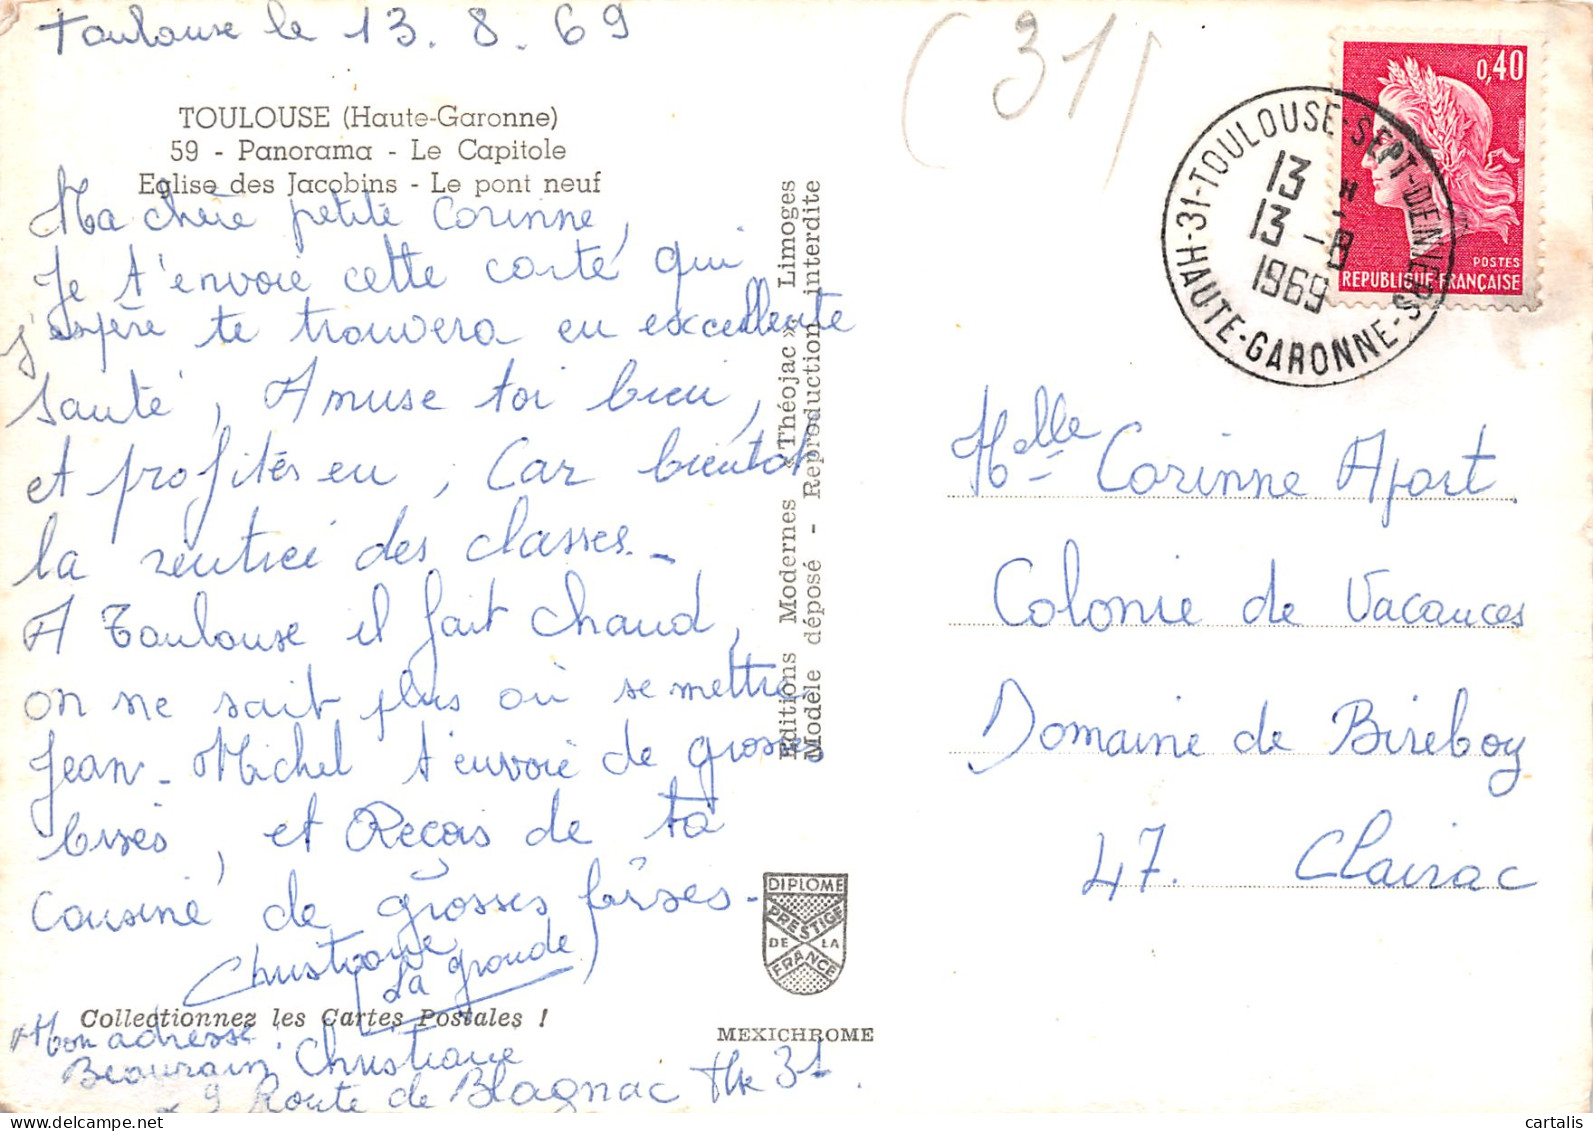 Toulouse le 13.8.69
TOULOUSE (Haute-Garonne)
59 - Panorama - Le Capitole
Eglise des Jacobins - Le pont neuf
Ma chère petite Corinne,
Je t'envoie cette carte qui
j'espère te trouvera en excellente
santé, Amuse toi bien,
et profités en, Car bientôt
la rentrée des classes._
A Toulouse il fait chaud,
on ne sait plus où se mettre
Jean-Michel t'envoie de grosses
bises, et Reçois de ta
cousine de grosses bises._
Christiane
(La grande)
Collectionnez les Cartes Postales !
Mon adresse
Beaurain Christiane
9 Route de Blagnac Tlse 31.
Editions Modernes « Théojac » Limoges
Modèle déposé - Reproduction interdite
DIPLOME
PRESTIGE
DE LA
FRANCE
MEXICHROME
(31)
0,40
POSTES
REPUBLIQUE FRANÇAISE
31-TOULOUSE-SEPT-DENIERS
HAUTE-GARONNE-
13 H
13 -8
1969
Melle Corinne Apart
Colonie de Vacances
Domaine de Bireboy
47. Clairac
cartalis
www.delcampe.net